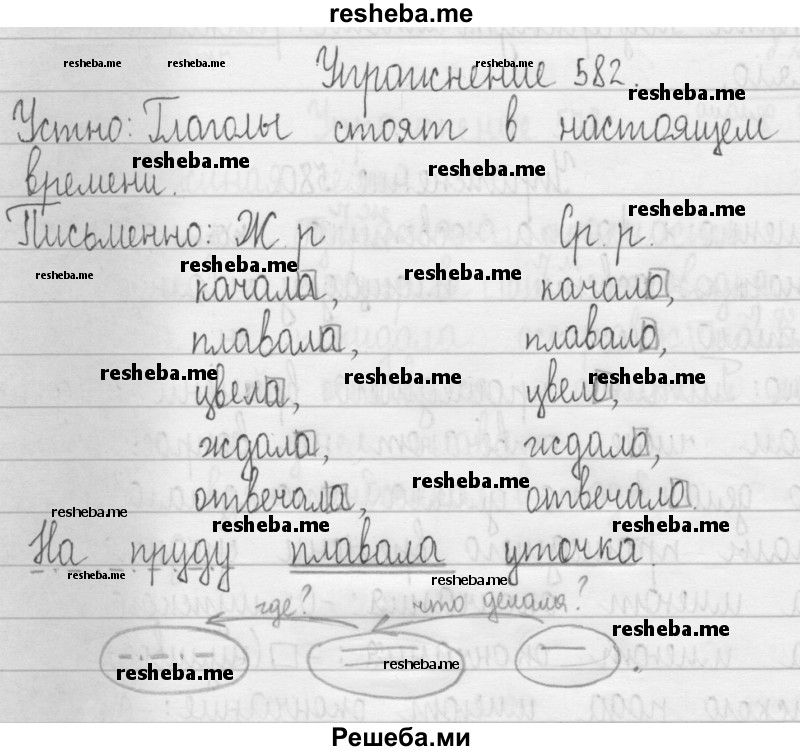 resheba.me
resheba.me resheba.me resheba.me
Упражнение 582.
resheba.me
Устно: Глаголы стоят в настоящем
resheba.me resheba.me
времени.
resheba.me
Письменно: Ж. р Ср. р.
resheba.me resheba.me resheba.me
качала, качало,
плавала, плавало,
resheba.me resheba.me resheba.me
цвела, цвело,
ждала, ждало,
resheba.me
отвечала, отвечало.
resheba.me resheba.me resheba.me
На пруду плавала уточка.
resheba.me resheba.me
где? что делала?
resheba.me
resheba.me resheba.me
Решеба.ми